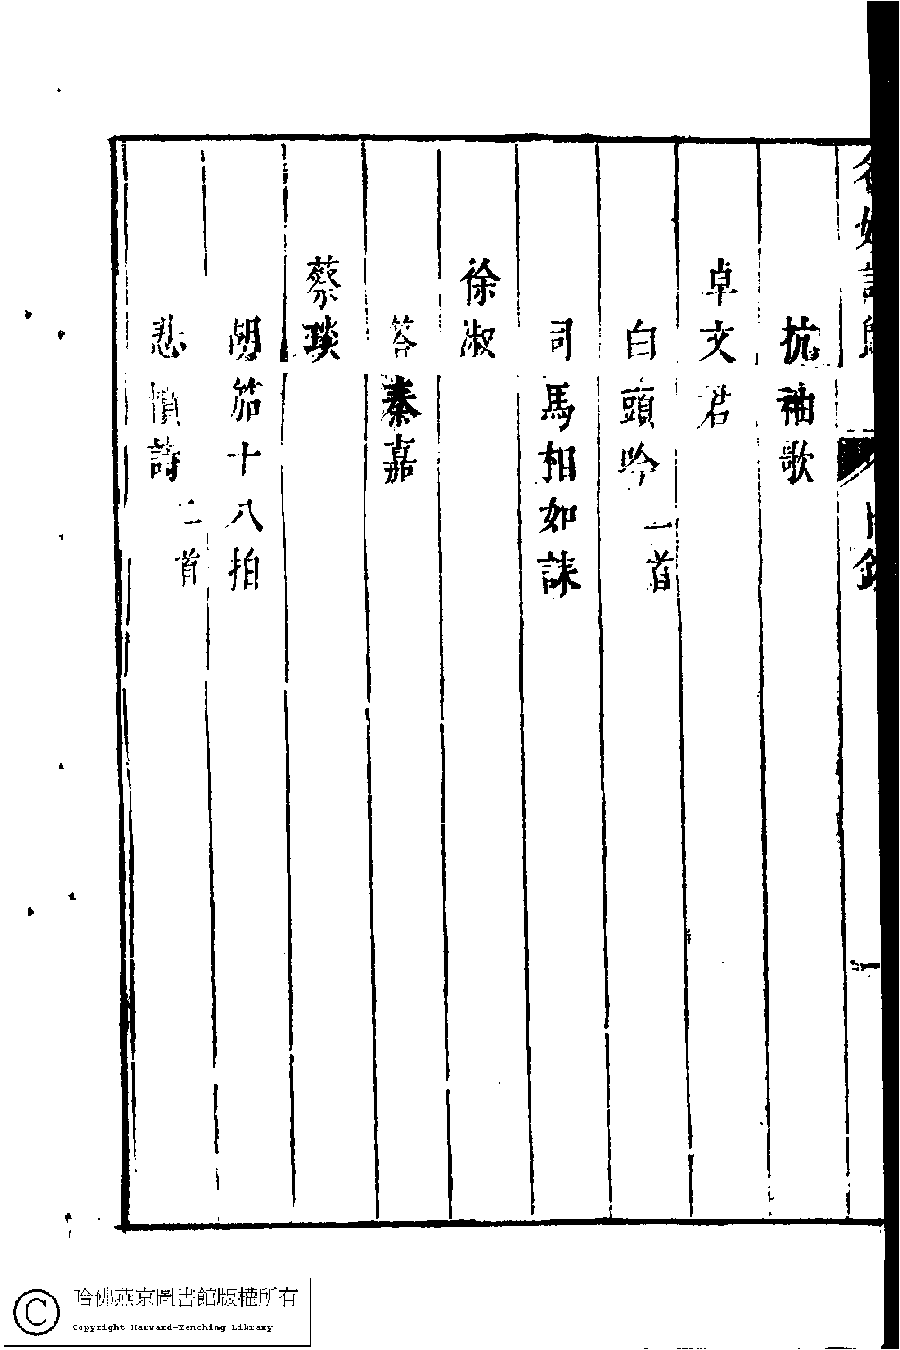 名媛詩歸　目錄　一
抗袖歌
卓文君
白頭吟一首
司馬相如誄
徐淑
答秦嘉
蔡琰
胡笳十八拍
悲憤詩二首
哈佛燕京圖書館版權所有
Copyright Harvard-Yenching Library